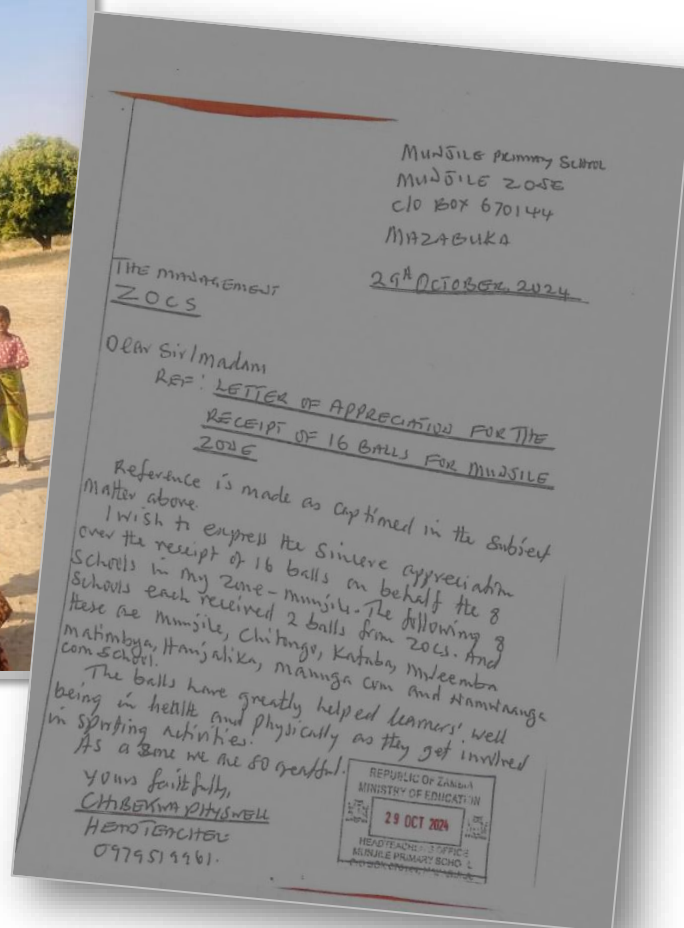 MUNJILE PRIMARY SCHOOL
MUNJILE ZONE
C/O BOX 670144
MAZABUKA
29th OCTOBER 2024
THE MANAGEMENT
ZOCS
Dear Sir/madam
REF: LETTER OF APPRECIATION FOR THE
RECEIPT OF 16 BALLS FOR MUNJILE
ZONE
Reference is made as captioned in the subject
matter above.
I wish to express the sincere appreciation
over the receipt of 16 balls on behalf the 8
schools in my zone - munjile. The following 8
schools each received 2 balls from ZOCS. And
these are munjile, Chitongo, Kataba, Mleemba
matimbya, Hanjalika, manunga com and Namwaanga
com school.
The balls have greatly helped learners' well
being in health and physically as they get involved
in sporting activities.
As a zone we are so grateful.
yours faithfully,
CHIBEKWA PHYSWELL
HEADTEACHER
REPUBLIC OF ZAMBIA
MINISTRY OF EDUCATION
29 OCT 2024
HEADTEACHER'S OFFICE
MUNJILE PRIMARY SCHOOL